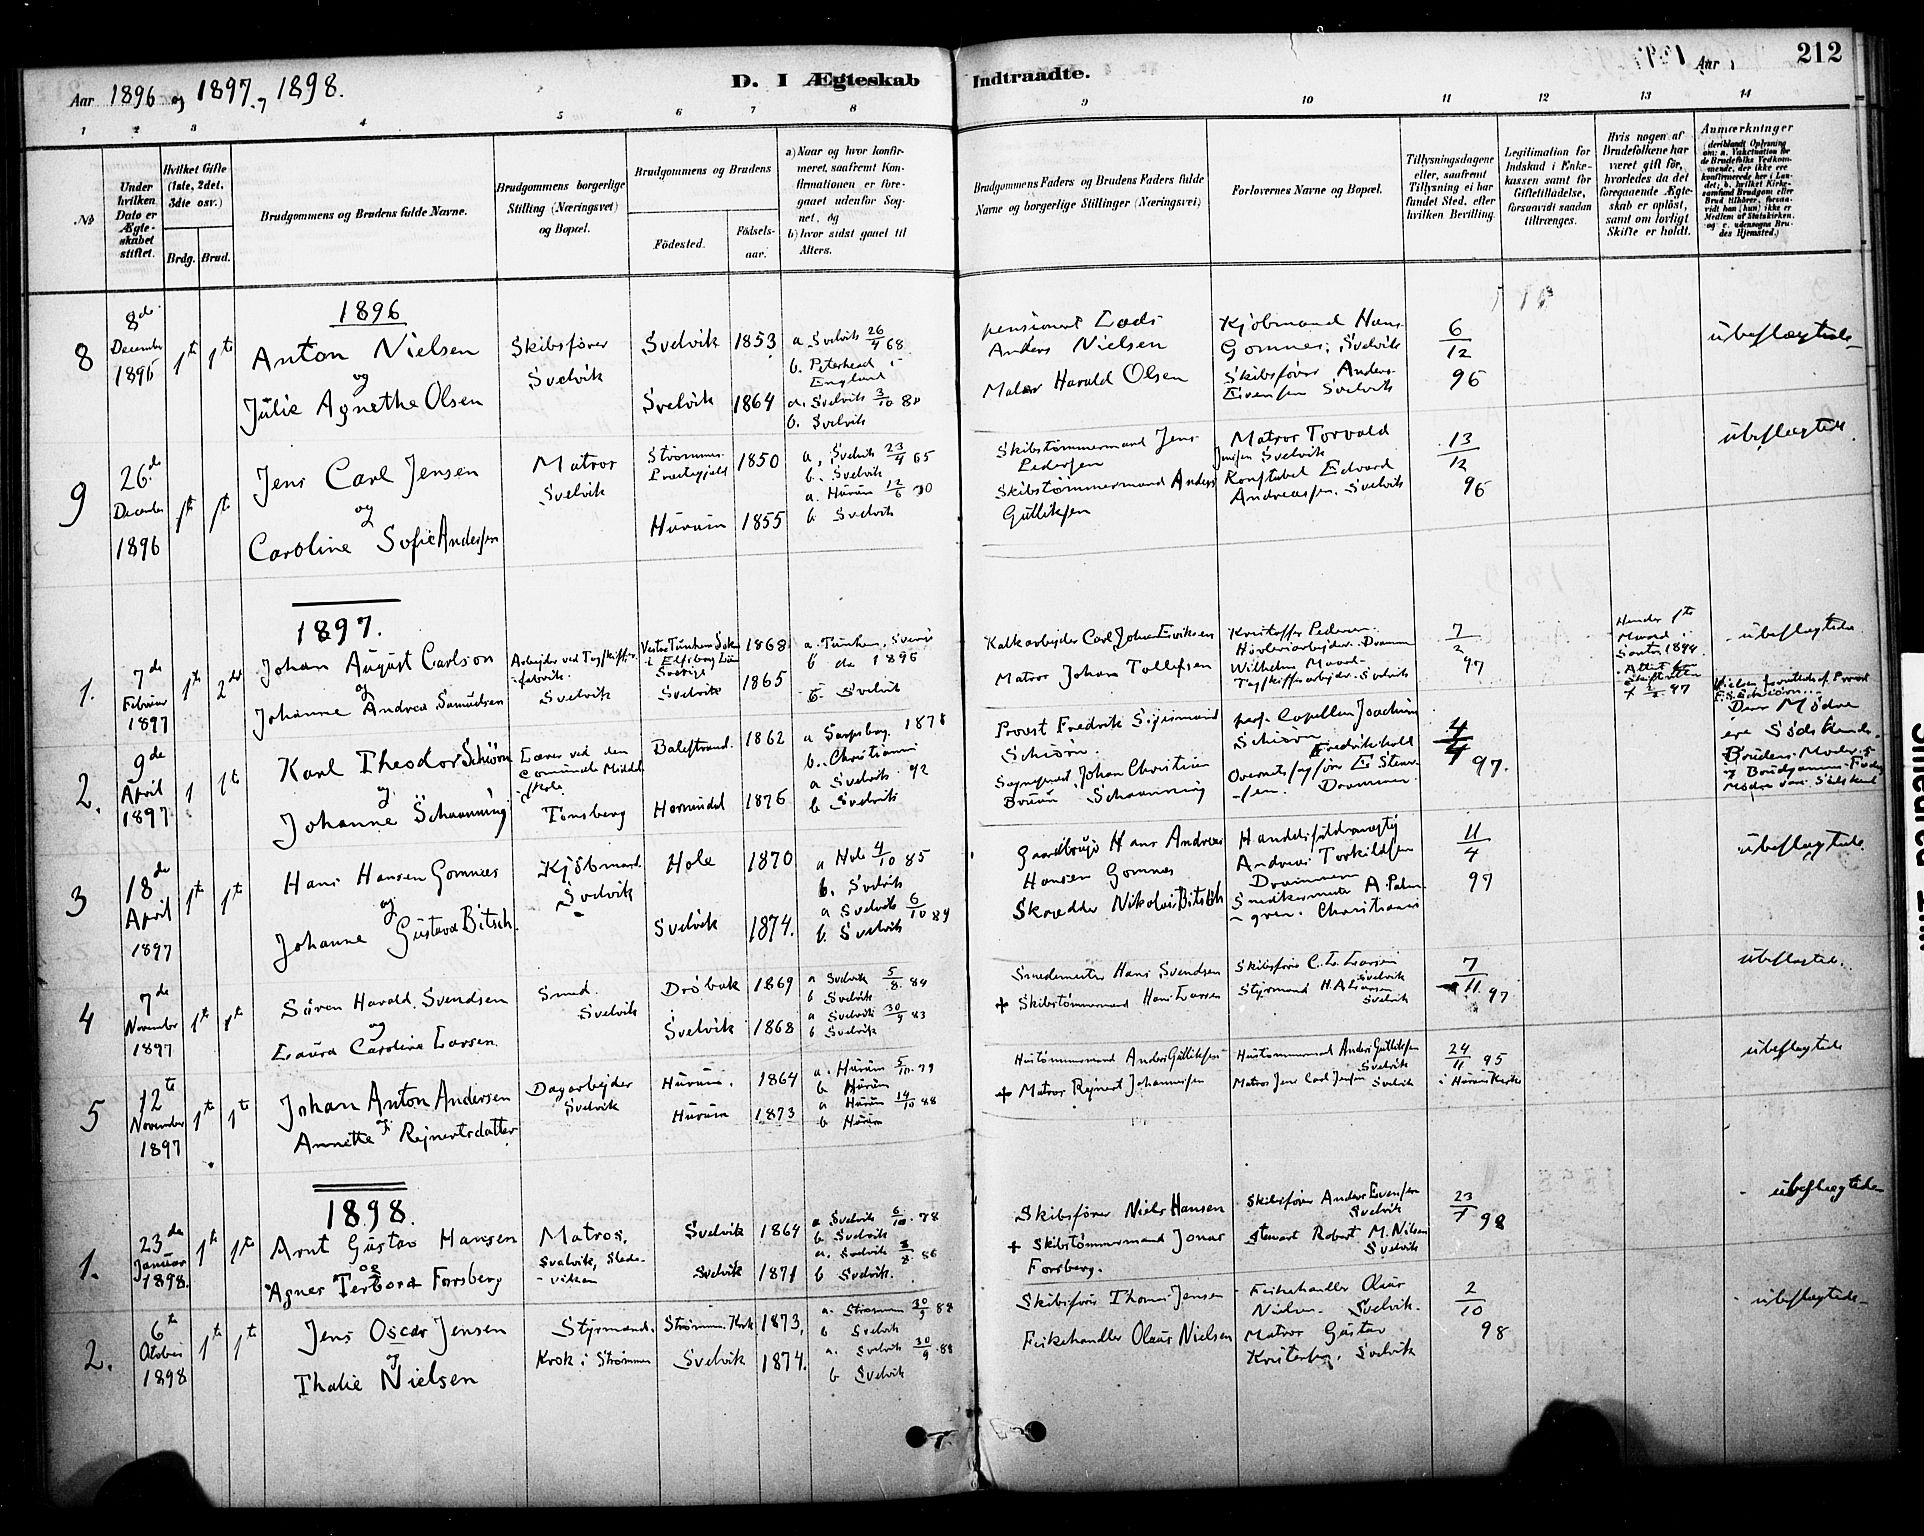 Aar 1896 og 1897, 1898.
D. I Ægteskab Indtraadte.
Aar
212
1 2 3 4 5 6 7 8 9 10 11 12 13 14
No
Under hvilken Dato er Ægteskabet stiftet.
Hvilket Gifte (1ste, 2det, 3die osv.)
Brdg. Brud.
Brudgommens og Brudens fulde Navne.
Brudgommens borgerlige Stilling (Næringsvei) og Bopæl.
Brudgommens og Brudens
Fødested.
Fødselsaar.
a) Naar og hvor konfirmeret, saafremt Konfirmationen er foregaaet udenfor Sognet, og
b) hvor sidst gaaet til Alters.
Brudgommens Faders og Brudens Faders fulde Navne og borgerlige Stillinger (Næringsvei)
Forlovernes Navne og Bopæl.
Tillysningsdagene eller, saafremt Tillysning ei har fundet Sted, efter hvilken Bevilling.
Legitimation for Indskud i Enkekassen samt for Giftetilladelse, forsaavidt saadan tiltrænges.
Hvis nogen af Brudefolkene har været gift før, hvorledes da det foregaaende Ægteskab er opløst, samt om lovligt Skifte er holdt.
Anmærkninger
1896
8
8de December 1896
1te 1te
Anton Nielsen
og
Julie Agnethe Olsen
Skibsfører
Svelvik
Svelvik 1853
Svelvik 1864
a Svelvik 26/4 68.
b. Peterhead i England
a. Svelvik 3/10 80
b. Svelvik
pensioneret Lods
Anders Nielsen
Maler Harald Olsen
Kjøbmand Hans Gomnes, Svelvik
Skibsfører Anders Evensen Svelvik
6/12 96
ubeslægtede
9
26de December 1896
1te 1te
Jens Carl Jensen
og
Caroline Sofie Andersen
Matros
Svelvik
Strømms Præstegjeld 1850
Hurum 1855
a. Svelvik 23/4 65
b. Svelvik
a. Hurum 12/6 70
b Svelvik
Skibstømmermand Jens Pedersen
Skibstømmermand Anders Gulliksen
Matros Torvald Jensen Svelvik
Konstabel Edvard Andreassen. Svelvik
13/12 96
ubeslægtede.
1897.
1.
7de Februar 1897
1te 2det
Johan August Carlson
og
Johanne Andrea Samuelsen
Svelvik
1868
Svelvik 1865
b do 1896
b Svelvik
Kalkarbejder Carl Johan Eriksen
Matros Johan Tollefsen
Kristoffer Pedersen
Høvleriarbejder. Drammen
7/2 97
ubeslægtede
2.
9de April 1897
1 1te
Karl Theodor Schiørn
og
Johanne Schanning
Lærer ved den
Tønsberg
Balestrand. 1862
Hornindal 1876
a Sarpsborg 1878
b. Christiania
a Svelvik 92
b Svelvik
Provst Fredrik Sigismund Schiørn.
Sogneprest Johan Christian
4/4 97.
3
18de April 1897
1te 1te
Hans Hansen Gomnes
og
Johanne Gustava Bitsch.
Kjøbmand
Svelvik
Hole 1870
Svelvik 1874.
a Hole 4/10 85
b. Svelvik
a Svelvik 6/10 89
b. Svelvik
Gaardbruger Hans Andreas Hansen Gomnes
Skrædder Nikolai Bitsch
Andreas Torkildsen
Drammen
11/4 97
ubeslægtede.
4
7de November 1897
1te 1te
Søren Harald Svendsen
og
Laura Caroline Larsen.
Smed.
Svelvik
Drøbak 1869
Svelvik 1868
a Svelvik 5/8 84
b Svelvik
a Svelvik 30/9 83
b Svelvik
Smedemester Hans Svendsen
+ Skibstømmermand Hans Larsen
Skibsfører C. L. Larsen Svelvik
Styrmand H A Larsen Svelvik
7/11 97
ubeslægtede.
5
12te November 1897
1te 1te
Johan Anton Andersen
og
Annette Rejnertsdatter
Dagarbejder
Svelvik
Hurum. 1864
Hurum 1873
a. Hurum 5/10 79
b Hurum
a Hurum 14/10 88
b Hurum
Hustømmermand Anders Gulliksen
+ Matros Rejnert Johannesen
Hustømmermand Anders Gulliksen Svelvik
Matros Jens Carl Jensen Svelvik
24/11 95
i Hurum Kirke
ubeslægtede
1898.
1.
23de Januar 1898.
1te 1te
Arnt Gustav Hansen
og
Agnes Terbora Forsberg
Matros,
Svelvik 1864
Svelvik 1871
a Svelvik 6/10 78
b Svelvik
a. Svelvik 8/8 86
b Svelvik.
Skibsfører Niels Hansen
+ Skibstømmermand Jonas Forsberg.
Skibsfører Anders Evensen Svelvik
Stewart Robert M. Nilsen Svelvik
23/1 98
ubeslægtede
2.
6te Oktober 1898
1te 1te
Jens Oscar Jensen
og
Thalie Nielsen
Styrmand.
Krok i Strømmen
Strømm. Krok 1873,
Svelvik 1874.
a. Strømmen 30/9 88
b Svelvik
a. Svelvik 30/9 88
b Svelvik
Skibsfører Thomas Jensen
Fiskehandler Olaus Nielsen
Fiskehandler Olaus Nielsen. Svelvik.
Matros Gustav
Svelvik
2/10 98
ubeslægtede